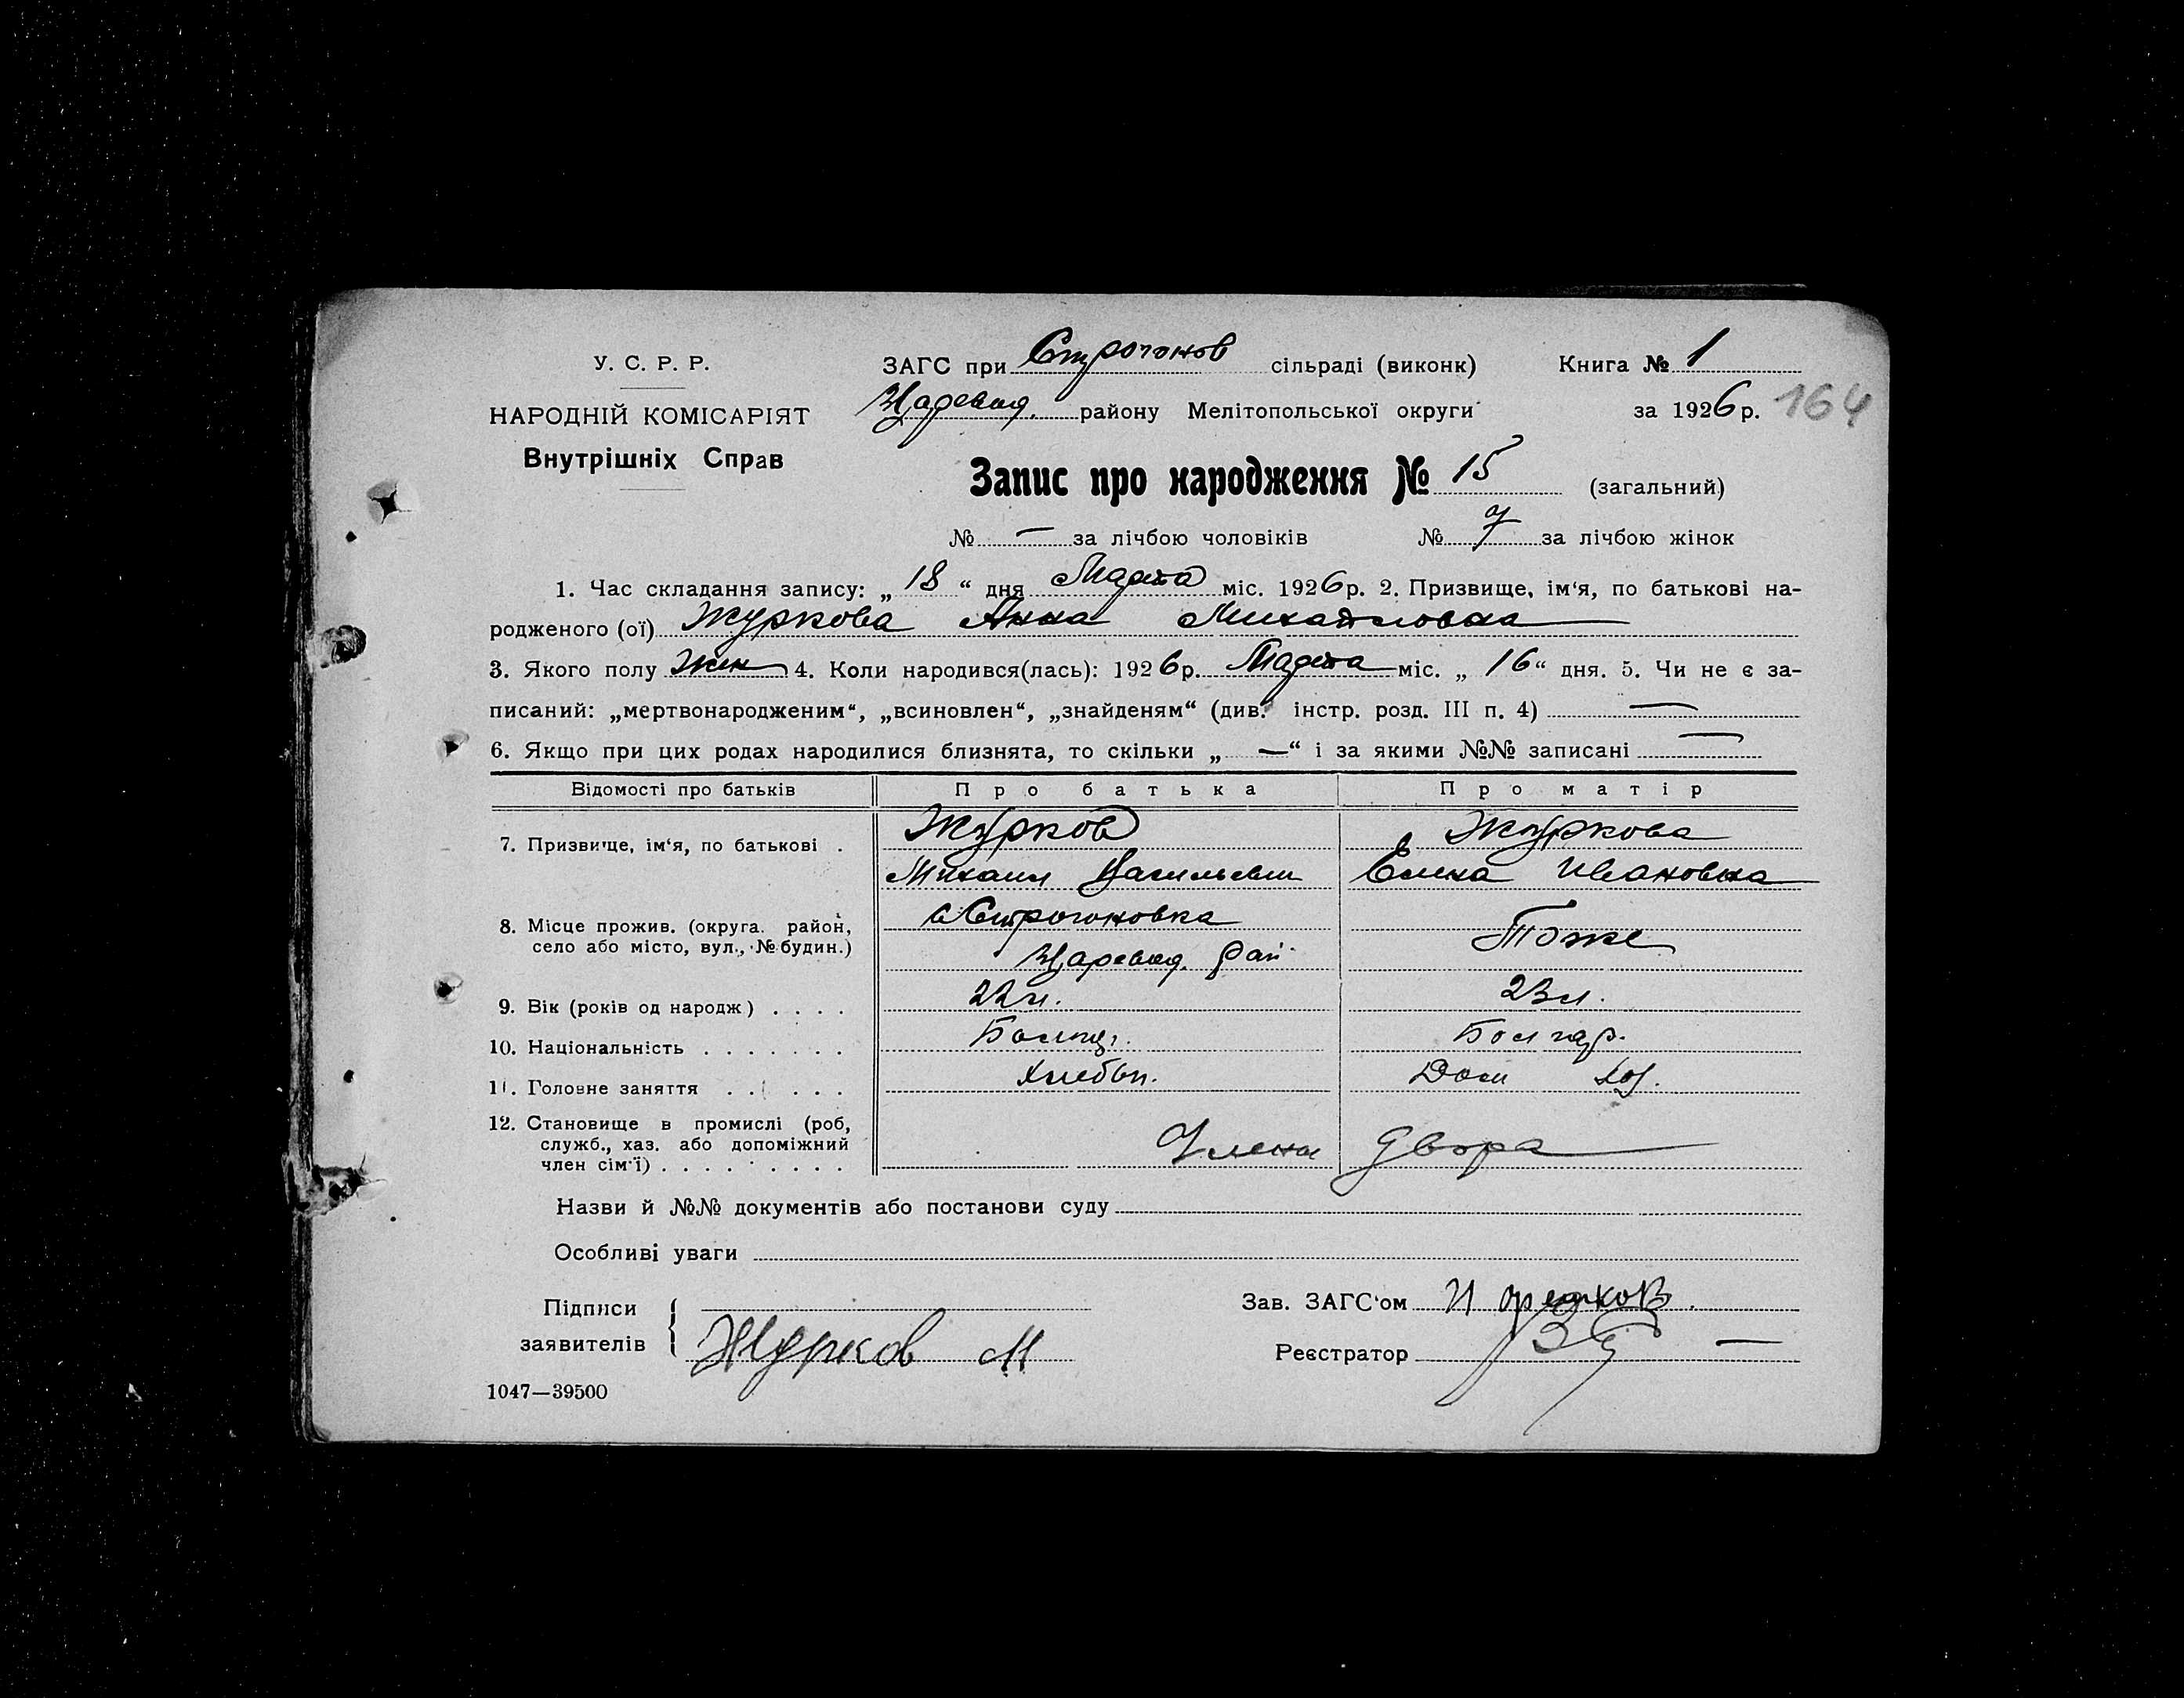 У. С. Р. Р.
НАРОДНІЙ КОМІСАРІЯТ
Внутрішніх Справ
ЗАГС при Строгонов сільраді (виконк) Книга № 1
Царевод. району Мелітопольської округи за 1926 р. 164
Запис про народження № 15 (загальний)
№ — за лічбою чоловіків № 7 за лічбою жінок
1. Час складання запису: „ 18 “ дня Марта міс. 1926 р. 2. Призвище, ім‘я, по батькові на-
родженого (ої) Журкова Анна Михайловна
3. Якого полу Жен 4. Коли народився(лась): 1926 р. Марта міс. „ 16 “ дня. 5. Чи не є за-
писаний: „мертвонародженим“, „всиновлен“, „знайденям“ (див. інстр. розд. III п. 4) —
6. Якщо при цих родах народилися близнята, то скільки „ — “ і за якими №№ записані —
Відомості про батьків Про батька Про матір
7. Призвище, ім‘я, по батькові . Журков Журкова
Михаил Васильевич Елена Ивановна
8. Місце прожив. (округа. район, село або місто, вул., № будин.) с Строгоновка Тоже
Царевод. рай
9. Вік (років од народж) . . . . 22 л. 23 л.
10. Національність . . . . . . . Болгар. Болгар.
11. Головне заняття . . . . . Хлебоп. Дом хоз.
12. Становище в промислі (роб, служб., хаз. або допоміжний член сім‘ї) . . . . . . . . . Члены двора
Назви й №№ документів або постанови суду
Особливі уваги
Підписи заявителів Журков М
Зав. ЗАГС‘ом
Реєстратор —
1047—39500